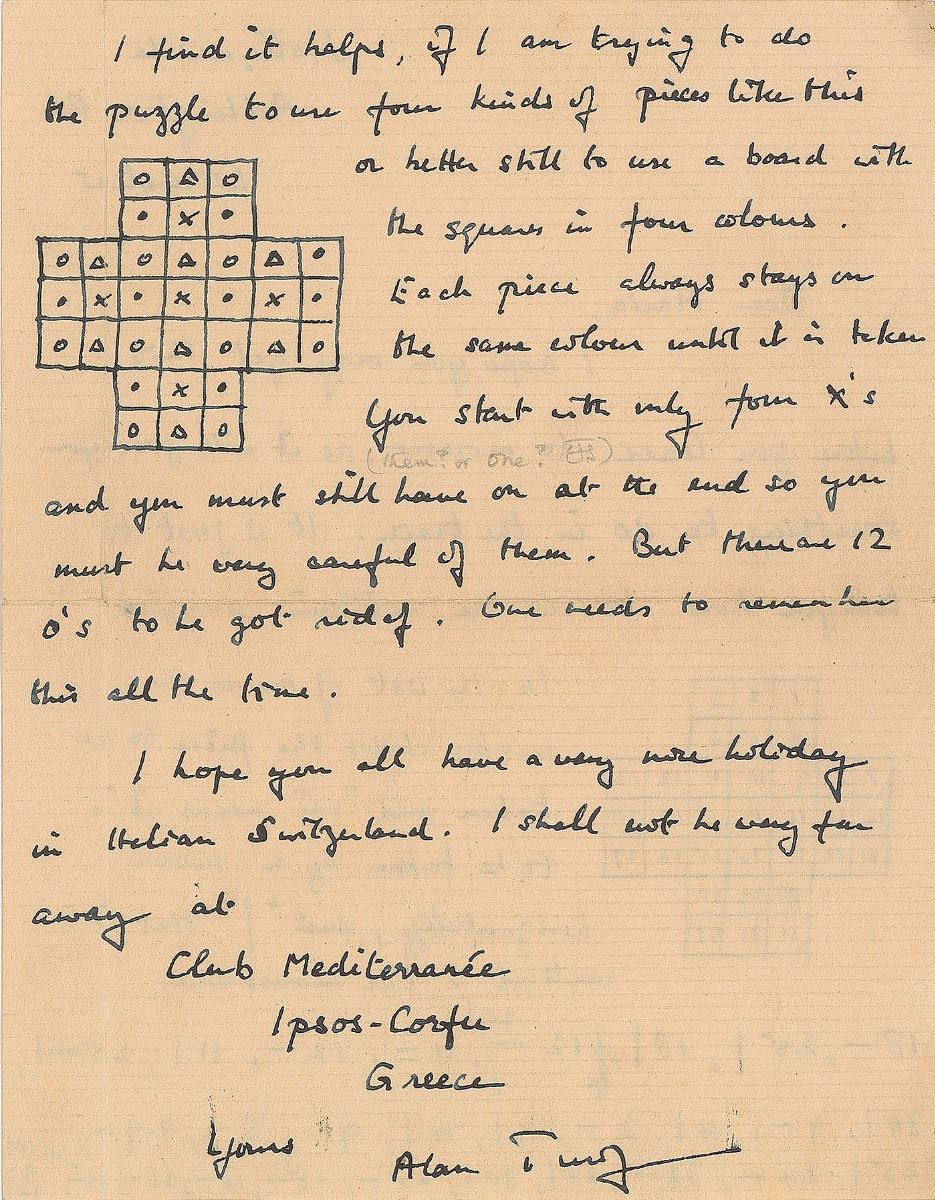 I find it helps, if I am trying to do
the puzzle to use four kinds of pieces like this
or better still to use a board with
the squares in four colours.
Each piece always stays on
the same colour until it is taken
You start with only four x's
(them? or one?
and you must still have on at the end so you
must be very careful of them. But there are 12
o's to be got rid of. One needs to remember
this all the time.
I hope you all have a very nice holiday
in Italian Switzerland. I shall not be very far
away at
Club Mediterranée
Ipsos-Corfu
Greece
Yours
Alan Turing